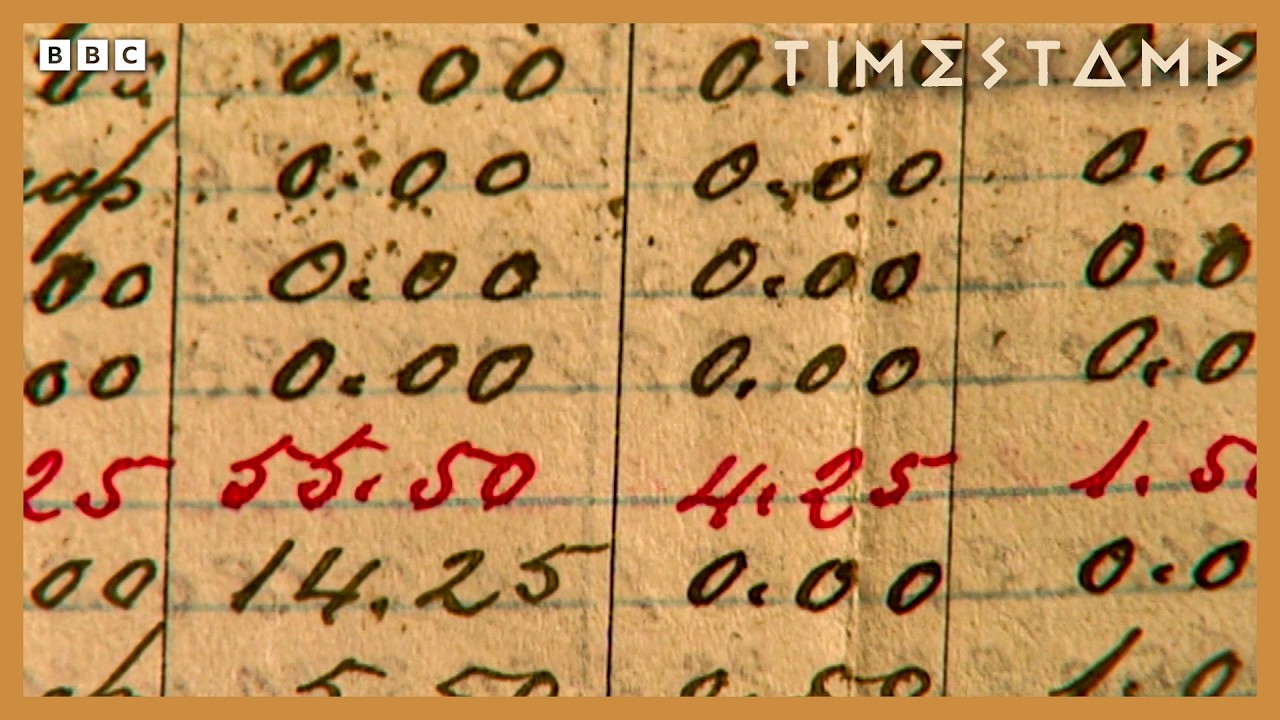 BBC TIMESTAMP
0.00 0.00
0.00 0.00 0.0
00 0.00 0.00 0.0
00 0.00 0.00 0.0
25 55.50 4.25 1.50
00 14.25 0.00 0.0